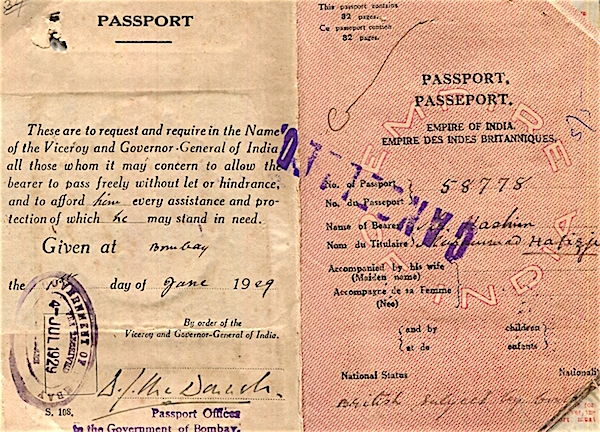 PASSPORT
These are to request and require in the Name
of the Viceroy and Governor-General of India
all those whom it may concern to allow the
bearer to pass freely without let or hindrance,
and to afford him every assistance and pro-
tection of which he may stand in need.
Given at Bombay
the day of June 1929
By order of the
Viceroy and Governor-General of India.
GOVERNMENT OF
4-JUL 1929
S. 108.
Passport Office
to the Government of Bombay.
This passport contains
32 pages.
Ce passeport contient
32 pages.
PASSPORT.
PASSEPORT.
EMPIRE OF INDIA.
EMPIRE DES INDES BRITANNIQUES.
CANCELLED
No. of Passport 58778
No. du Passeport
Name of Bearer Hashim
Nom du Titulaire Mohammad Hafizji
Accompanied by his wife
(Maiden name)
Accompagné de sa Femme
(Née)
and by children
et de enfants
National Status
British subject by